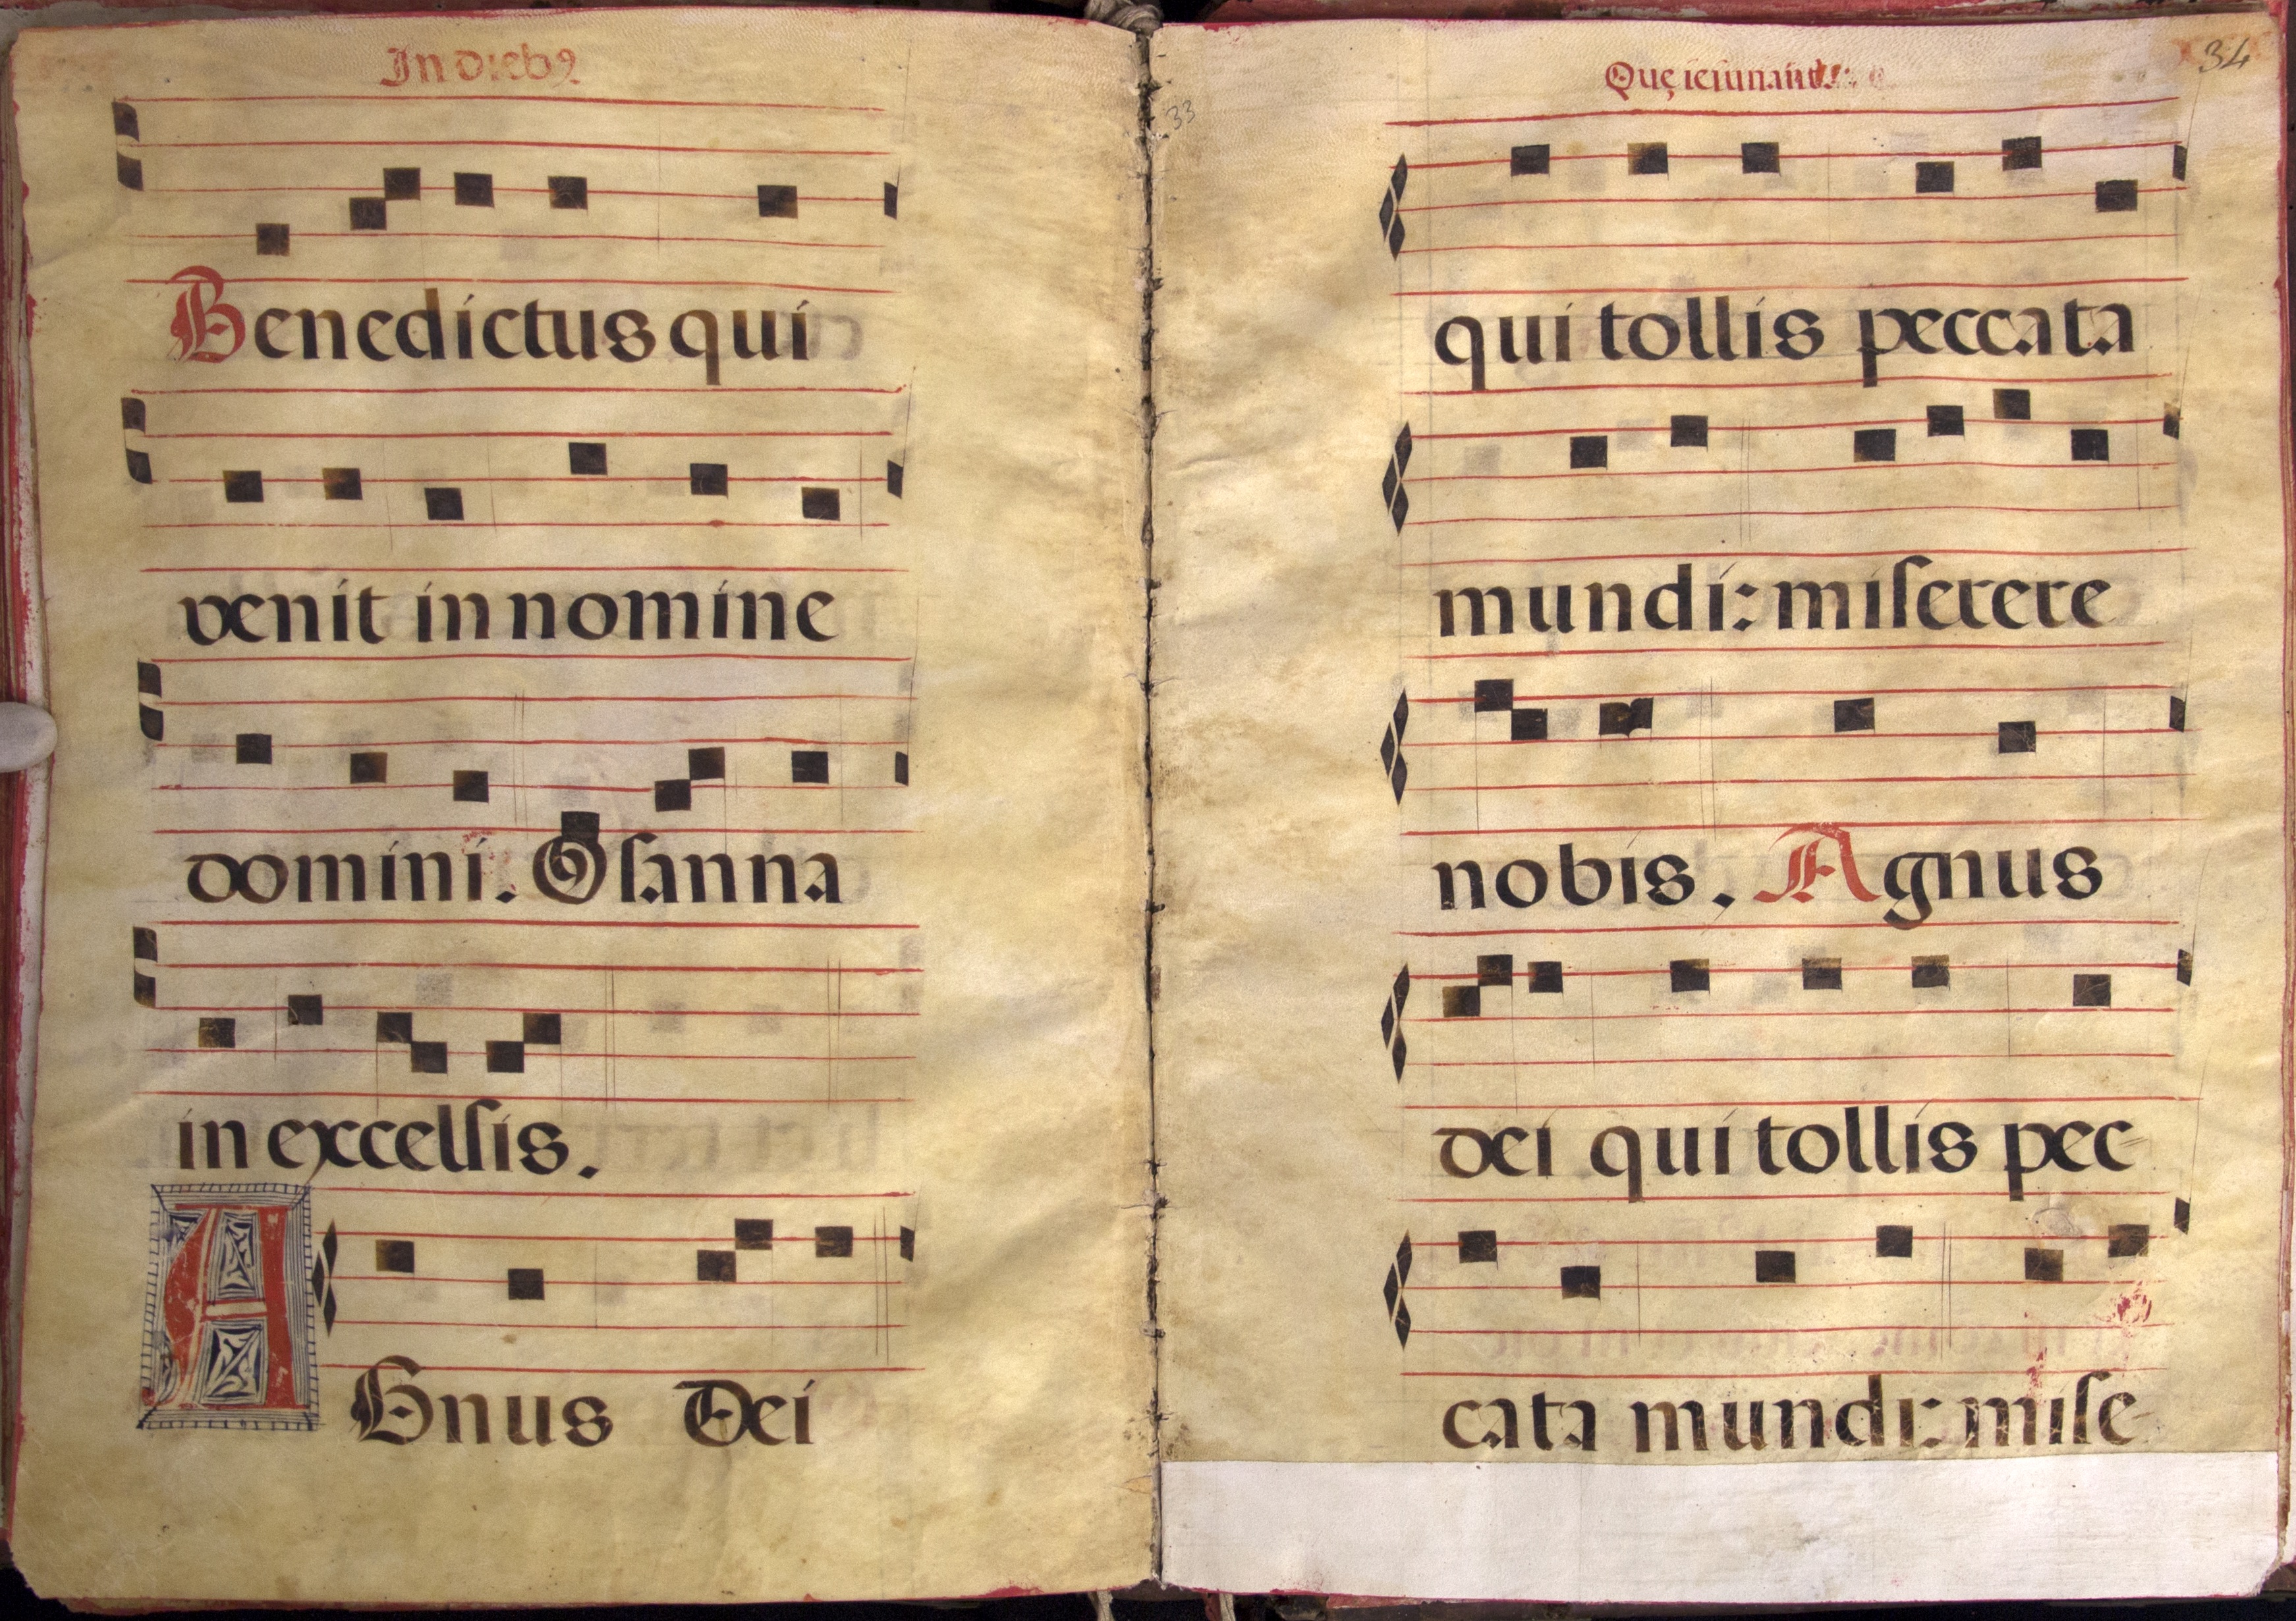 In dieb9
Benedictus qui
venit in nomine
domini. Oſanna
in excelſis.
AGnus Dei
34
33
qui tollis peccata
mundi: miſerere
nobis. Agnus
dei qui tollis pec-
cata mundi: miſe-